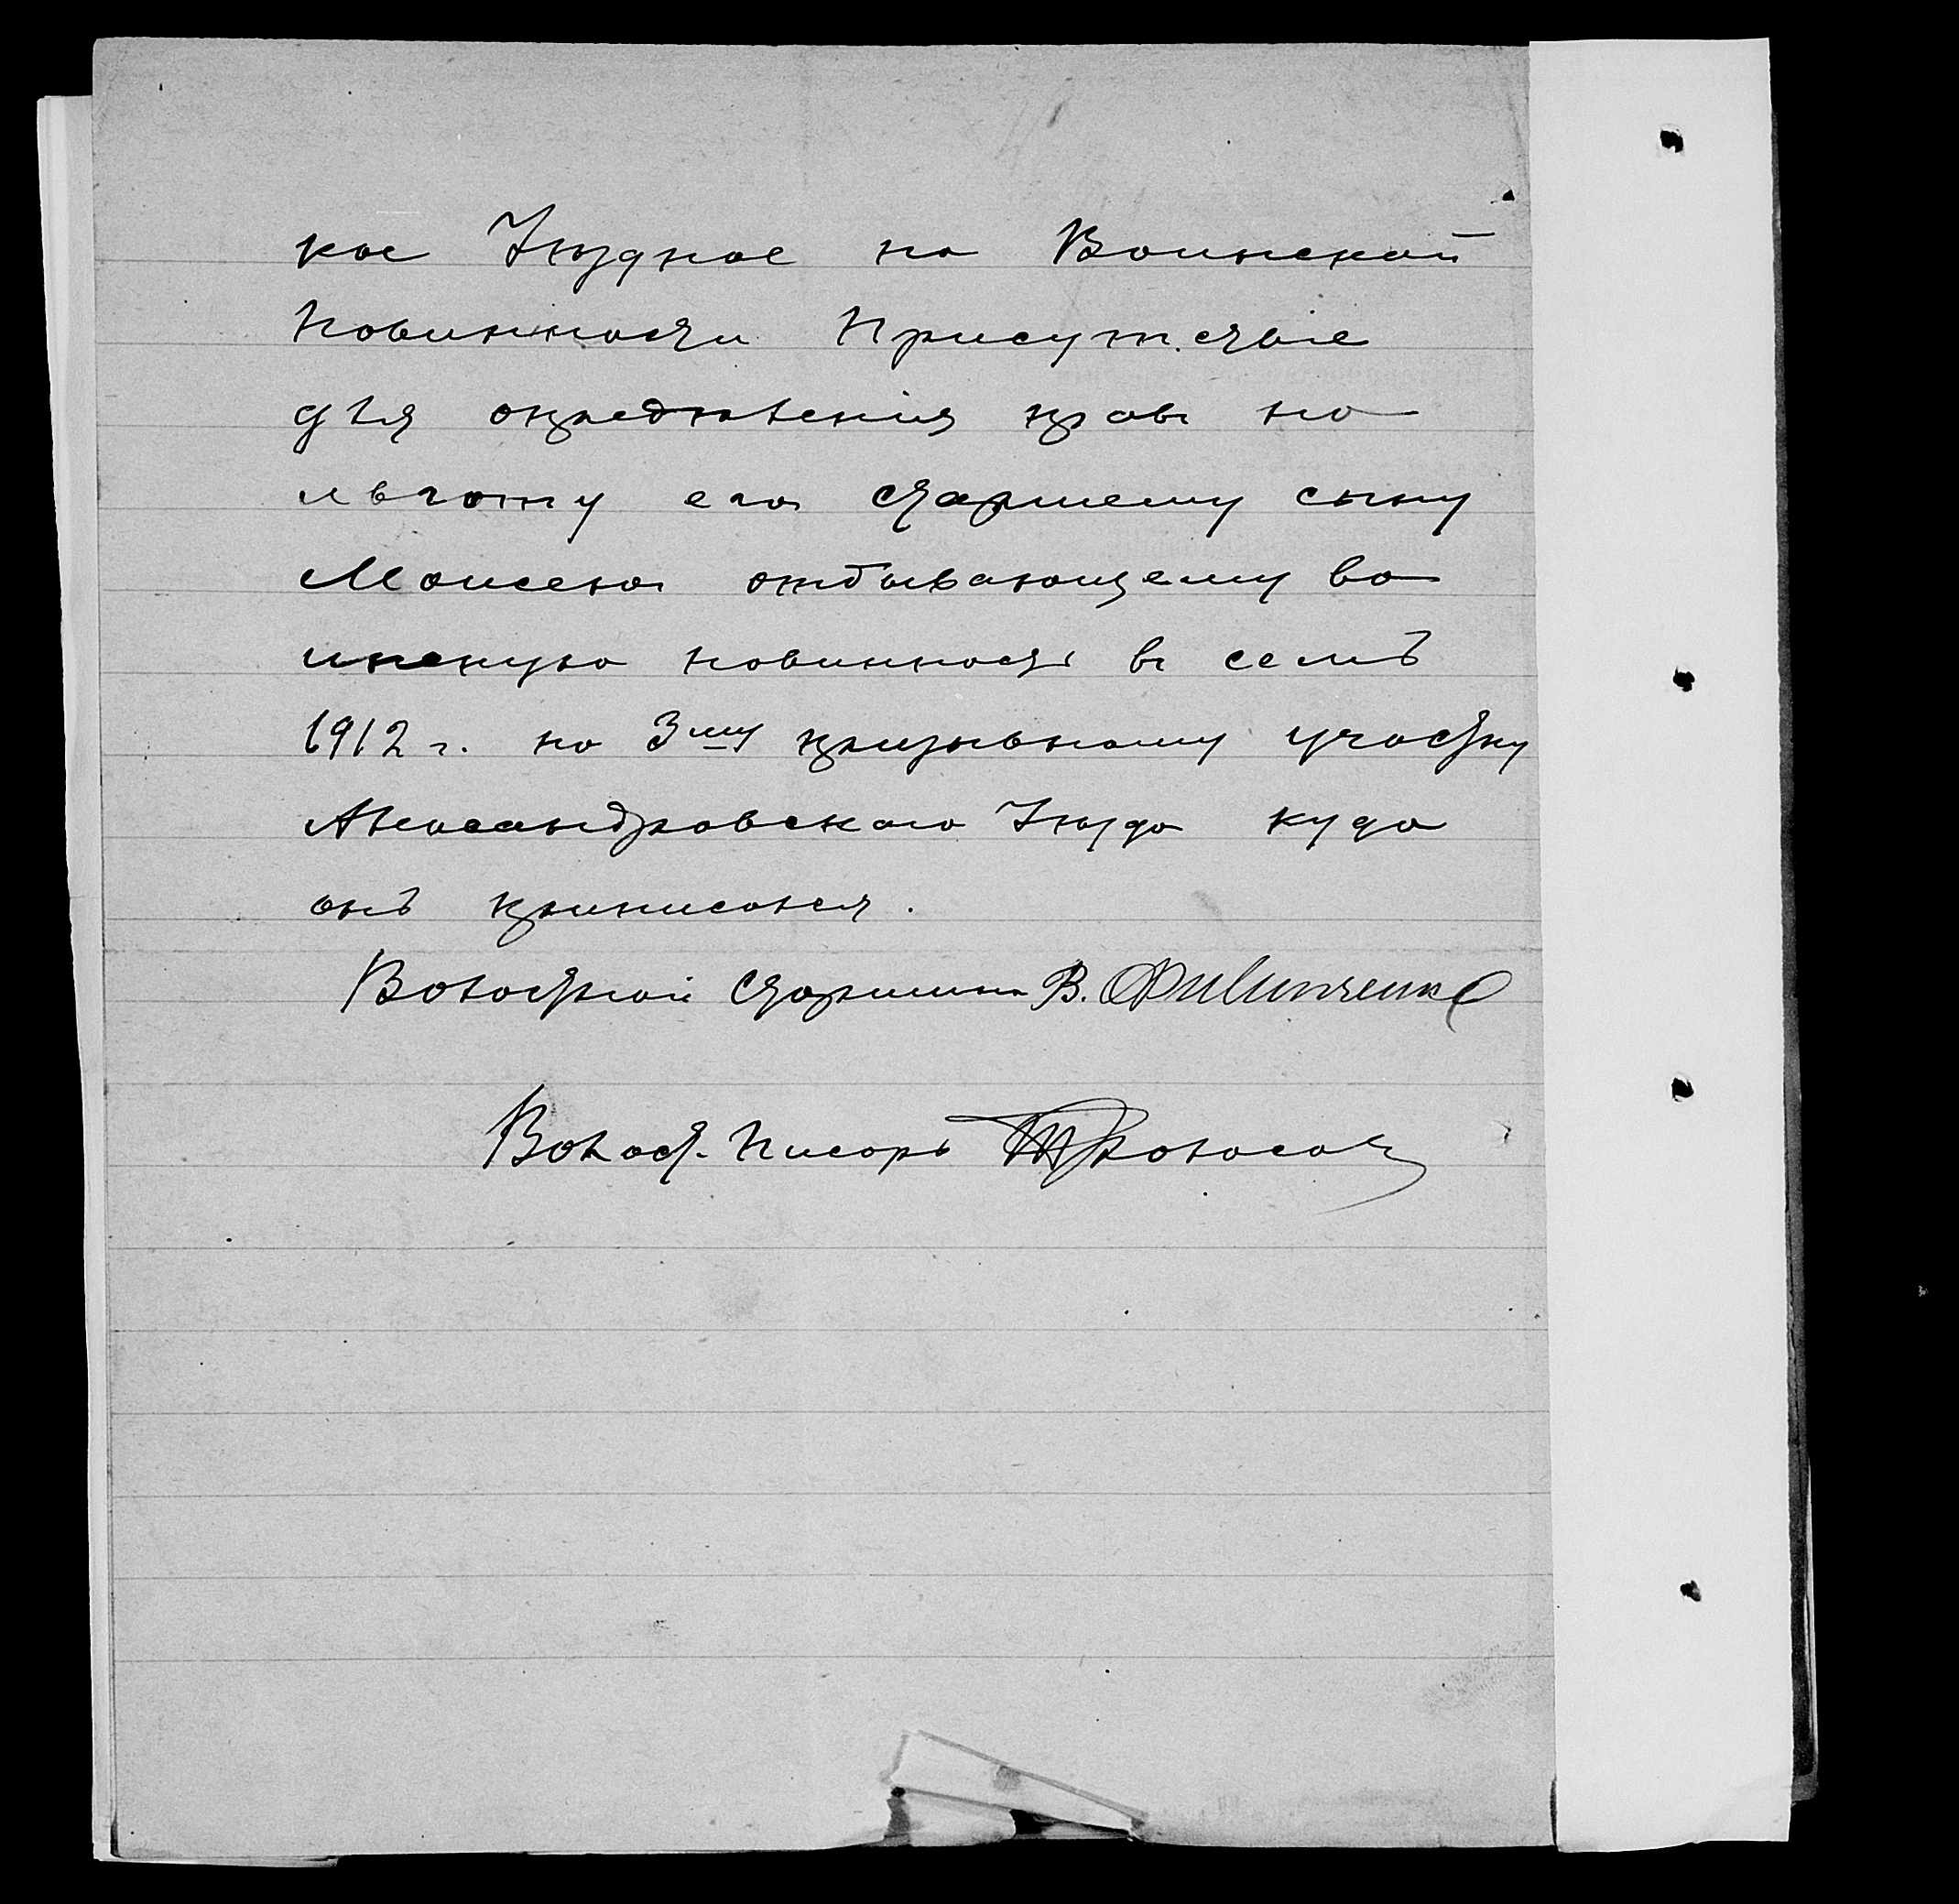 кое Уѣздное по Воинской
Повинности Присутствіе
для опредѣленія правъ на
льготу его старшему сыну
Моисею отбывающему во
инскую повинность въ семъ
1912 г. по 3му призывному участку
Александровскаго Уѣзда куда
онъ приписался.
Волостной Старшина В. Филипченко
Волост. Писарь